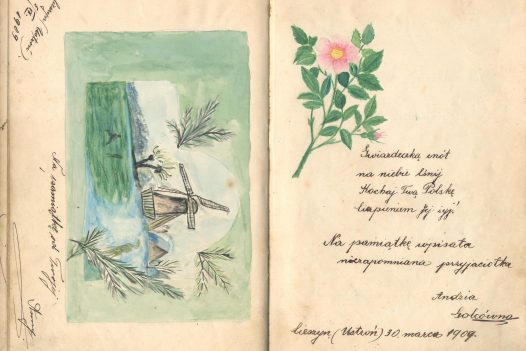 1909
Na pamiątkę od
Gwiazdeczką cnót
na niebie lśnij
Kochaj Twą Polskę
Na pamiątkę wpisała
niezapomniana przyjaciółka
Andzia
Golcówna
Cieszyn (Ustroń) 30. marca 1909.